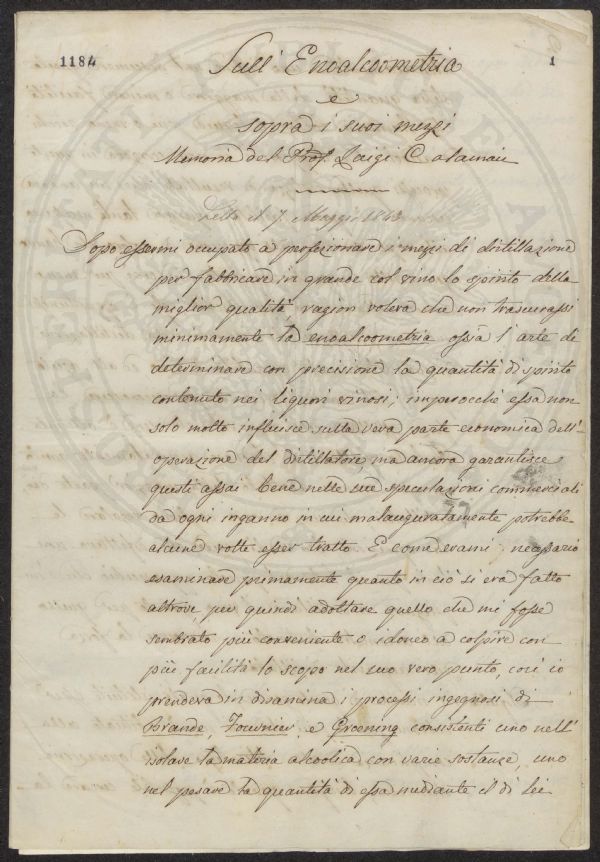 1184
1
Sull' Enoalcoometria
e
sopra i suoi mezzi
Memoria del Prof. Luigi Calamai
Letta il 7 Maggio 1843
Dopo essermi occupato a perfezionare i mezzi di distillazione
per fabbricare in grande col vino lo spirito della
miglior qualità, ragion voleva che non trascurassi
minimamente la enoalcoometria ossia l'arte di
determinare con precisione la quantità di spirito
contenuto nei liquori vinosi; imperocchè essa non
solo molto influisce sulla vera parte economica dell'
operazione del distillatore, ma ancora garantisce
questi assai bene nelle sue speculazioni commerciali
da ogni inganno in cui malauguratamente potrebbe
alcune volte esser tratto. E come erami necessario
esaminare primamente quanto in ciò si era fatto
altrove, per quindi adottare quello che mi fosse
sembrato più conveniente o idoneo a colpire con
più facilità lo scopo nel suo vero punto, così io
prendeva in disamina i processi ingegnosi di
Brande, e Groening consistenti uno nell'
isolare la materia alcoolica con varie sostanze, uno
nel pesare la quantità di essa mediante il di lei